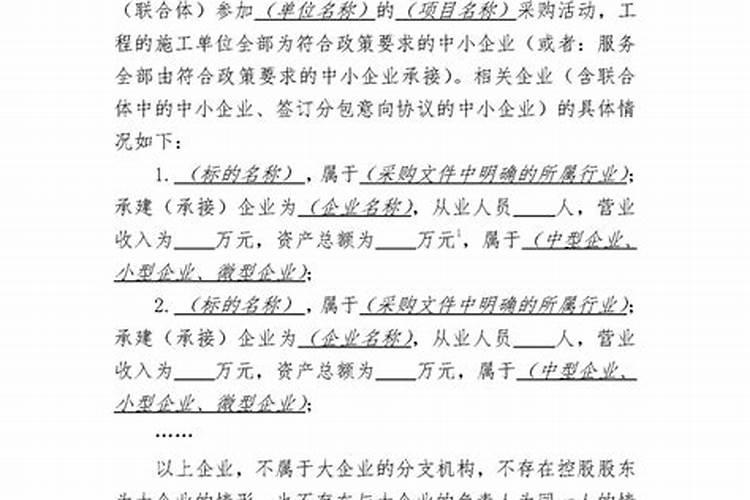 （联合体）参加（单位名称）的（项目名称）采购活动，工
程的施工单位全部为符合政策要求的中小企业（或者：服务
全部由符合政策要求的中小企业承接）。相关企业（含联合
体中的中小企业、签订分包意向协议的中小企业）的具体情
况如下：
1. （标的名称），属于（采购文件中明确的所属行业）；
承建（承接）企业为（企业名称），从业人员____人，营业
收入为____万元，资产总额为____万元1，属于（中型企业、
小型企业、微型企业）；
2. （标的名称），属于（采购文件中明确的所属行业）；
承建（承接）企业为（企业名称），从业人员____人，营业
收入为____万元，资产总额为____万元，属于（中型企业、
小型企业、微型企业）；
……
以上企业，不属于大企业的分支机构，不存在控股股东
为大企业的情形，也不存在与大企业的负责人为同一人的情